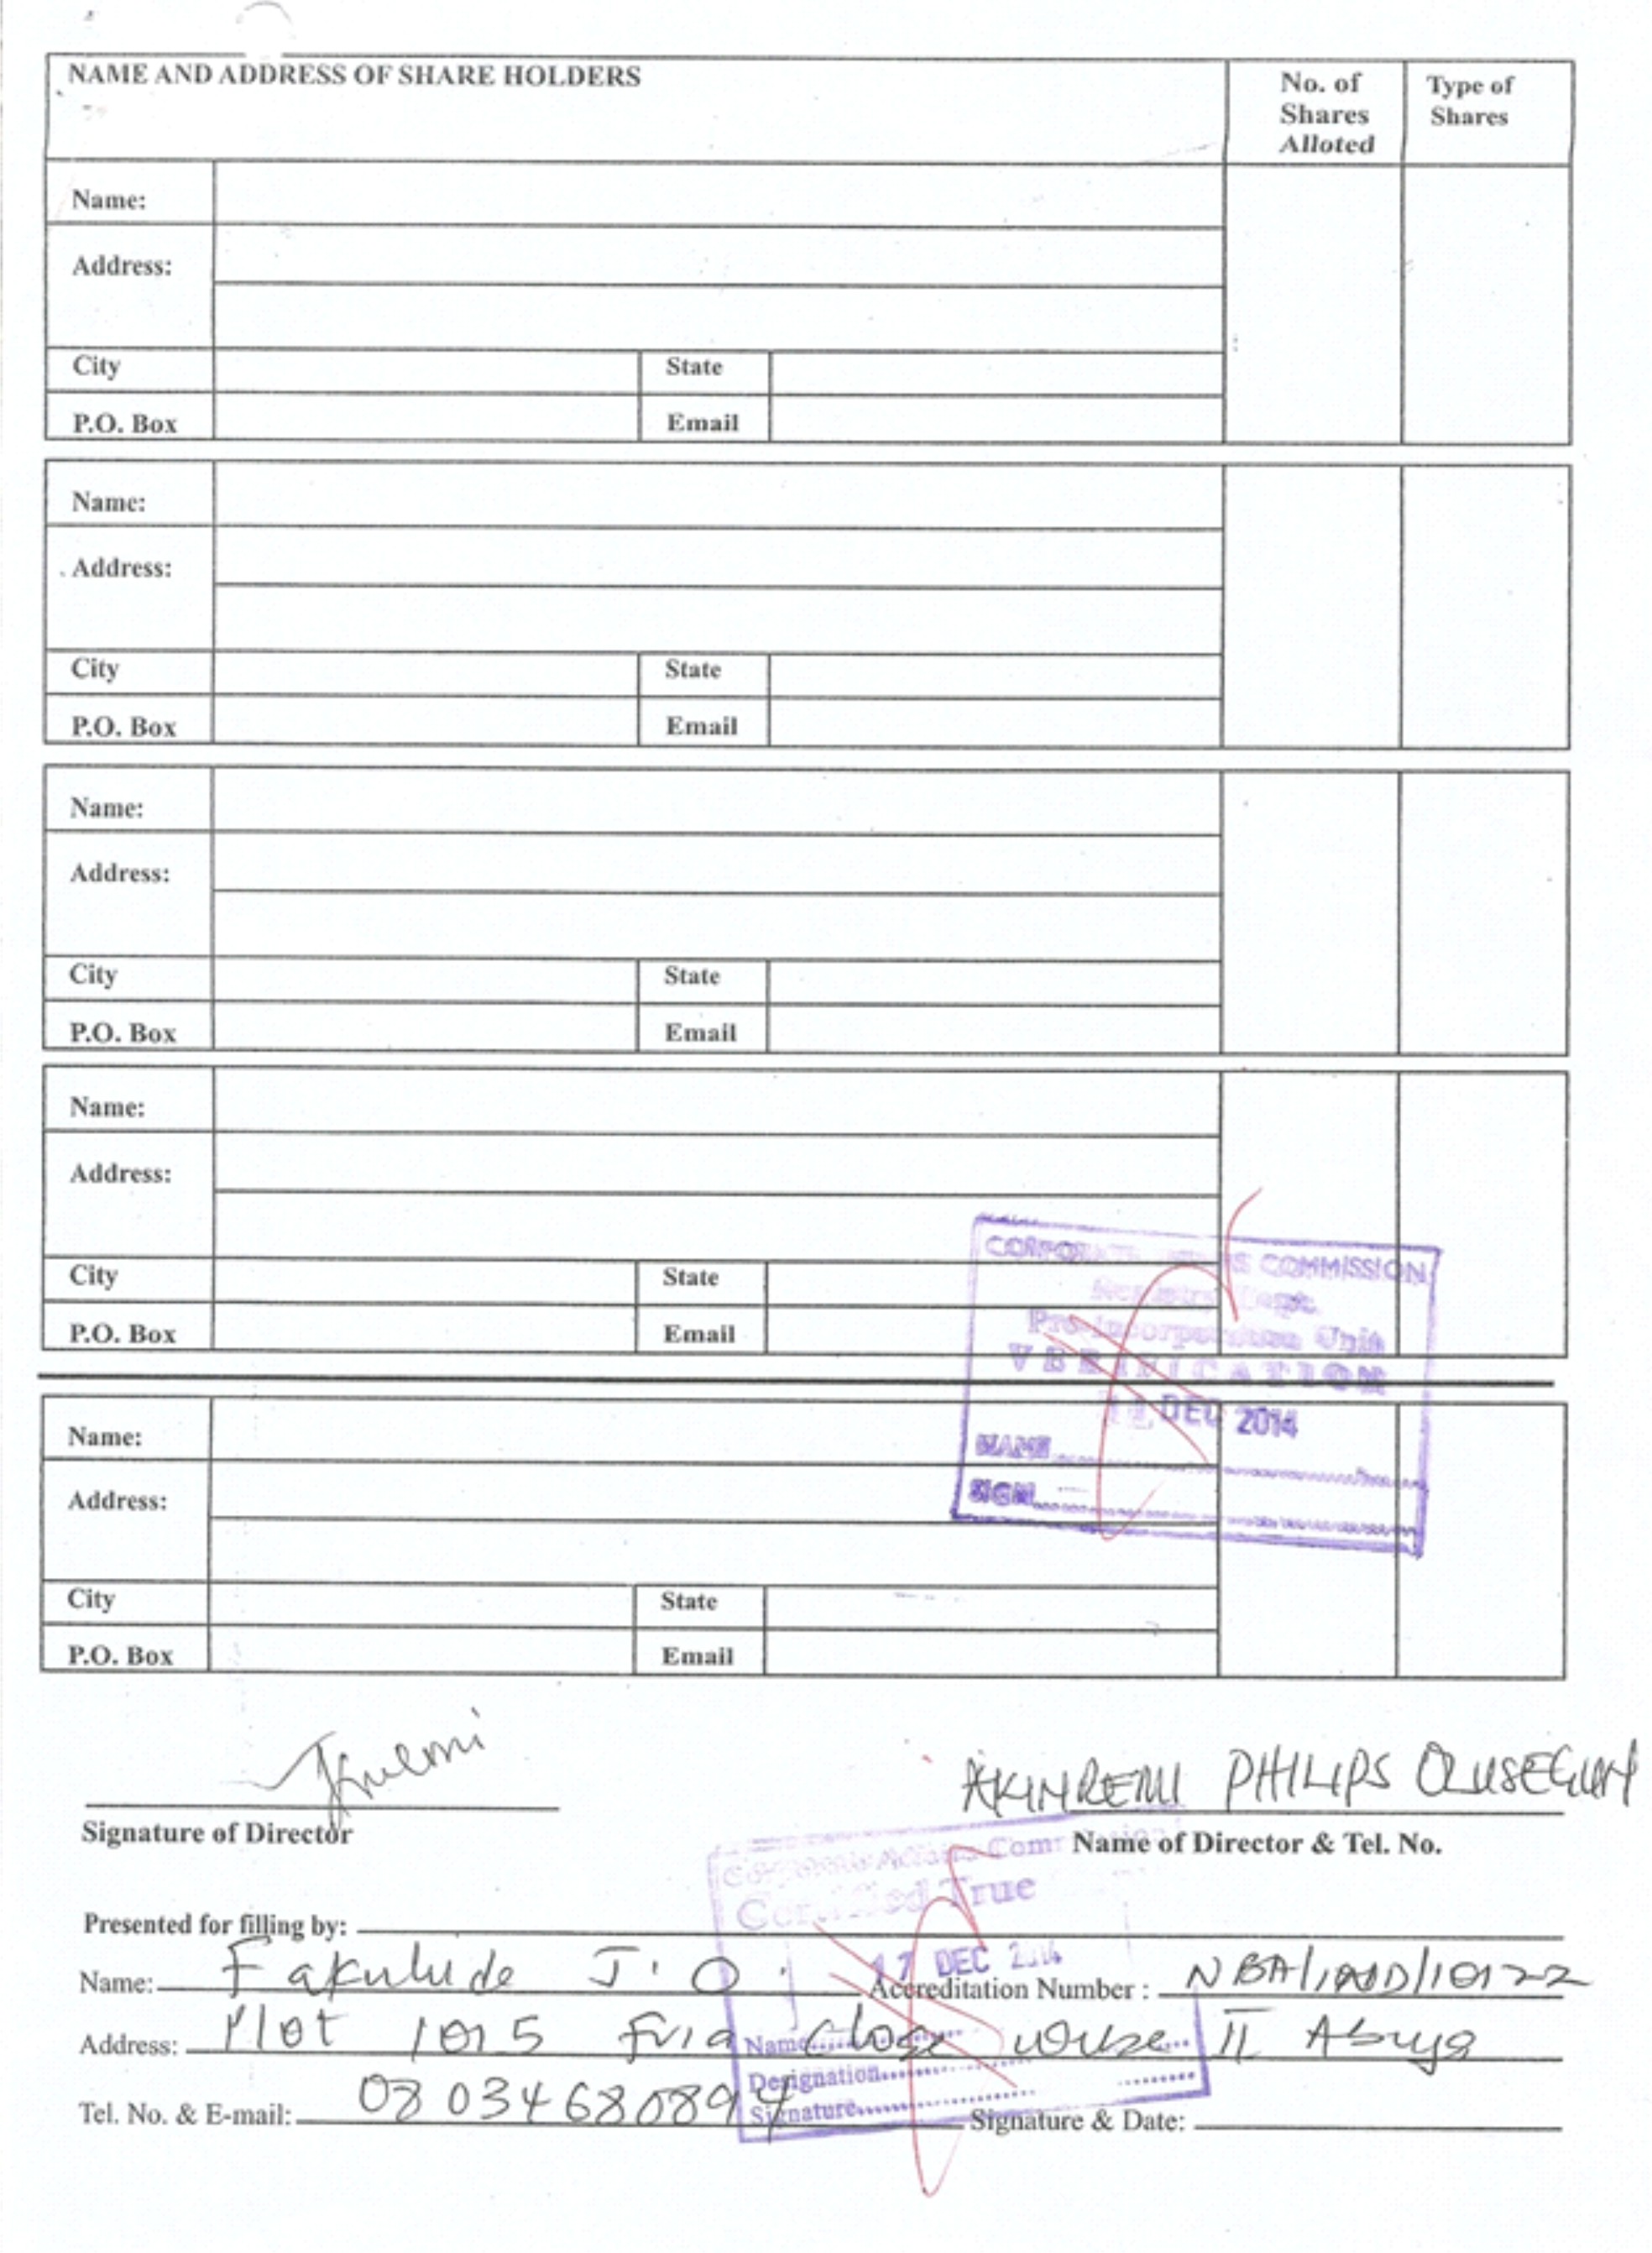 NAME AND ADDRESS OF SHARE HOLDERS
No. of Shares Alloted
Type of Shares
Name:
Address:
City State
P.O. Box Email
Name:
Address:
City State
P.O. Box Email
Name:
Address:
City State
P.O. Box Email
Name:
Address:
City State
P.O. Box Email
CORPORATE AFFAIRS COMMISSION
Registry Dept.
Pre-incorporation Unit
VERIFICATION
DEC 2014
NAME
SIGN
Name:
Address:
City State
P.O. Box Email
AKINREMI PHILIPS OLUSEGUN
Signature of Director Name of Director & Tel. No.
Corporate Affairs Commission
Certified True
17 DEC 2014
Name
Designation
Signature
Presented for filling by:
Name: Fakulude J. O. Accreditation Number :
Address: Plot 1015 Fria Close wuse II Abuja
Tel. No. & E-mail: 08034680894 Signature & Date: